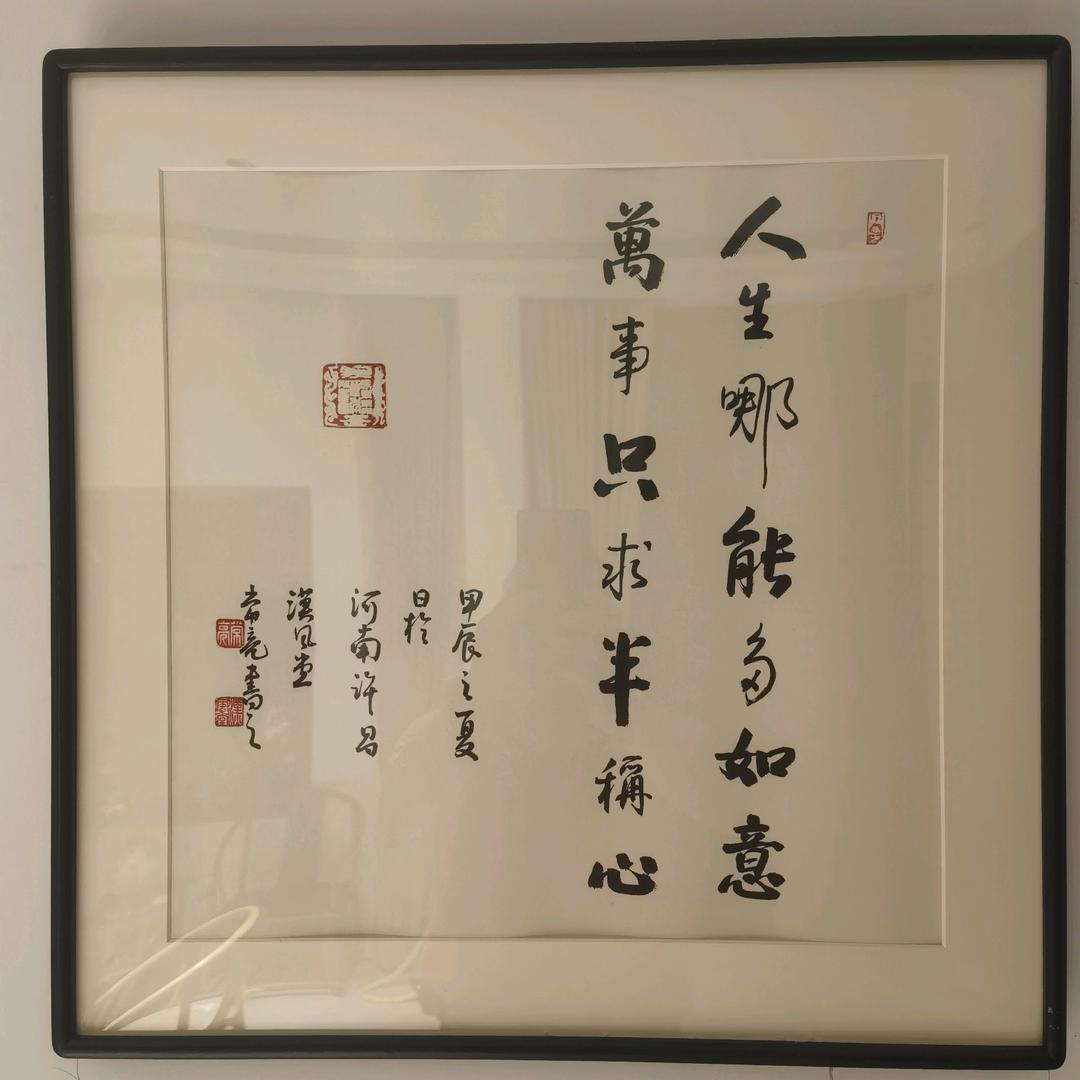 人生哪能多如意
萬事只求半稱心
甲辰之夏
日於
河南許昌
漢風堂
常亮書之